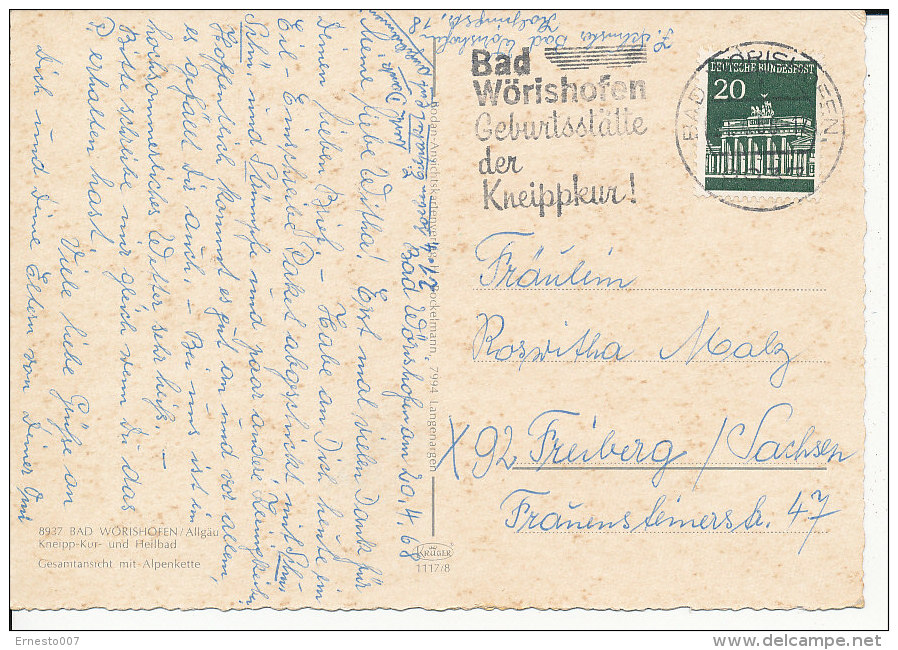 Z. Schuster, Bad Wörishofen
Kolpingstr. 18
Bad
Wörishofen
Geburtsstätte
der
Kneippkur!
BAD WÖRISHOFEN
DEUTSCHE BUNDESPOST
20
Fräulein
Roswitha Malz
X 92 Freiberg / Sachsen
Frauensteinerstr. 47
Bad Wörishofen am 20.4.68
Meine liebe Witha! Erst mal vielen Dank für
Deinen lieben Brief. – Habe an Dich heute ein
Eil – Einschreibe Paket abgeschickt mit
und Strümpfe und paar andere Kleinigkeiten.
Hoffentlich kommt es gut an und vor allem,
es gefällt Dir auch. – Bei uns ist im
hochsommerliches Wetter sehr heiß. –
Bitte schreibe mir gleich wenn Du das
P. erhalten hast. Viele liebe Grüße an
Dich und Deine Eltern von Deiner Omi
Bodan-Ansichtskartenverlag Bockelmann, 7994 Langenargen
KRÜGER
1117/8
8937 BAD WÖRISHOFEN/Allgäu
Kneipp-Kur- und Heilbad
Gesamtansicht mit Alpenkette
Ernesto007
www.delcampe.net